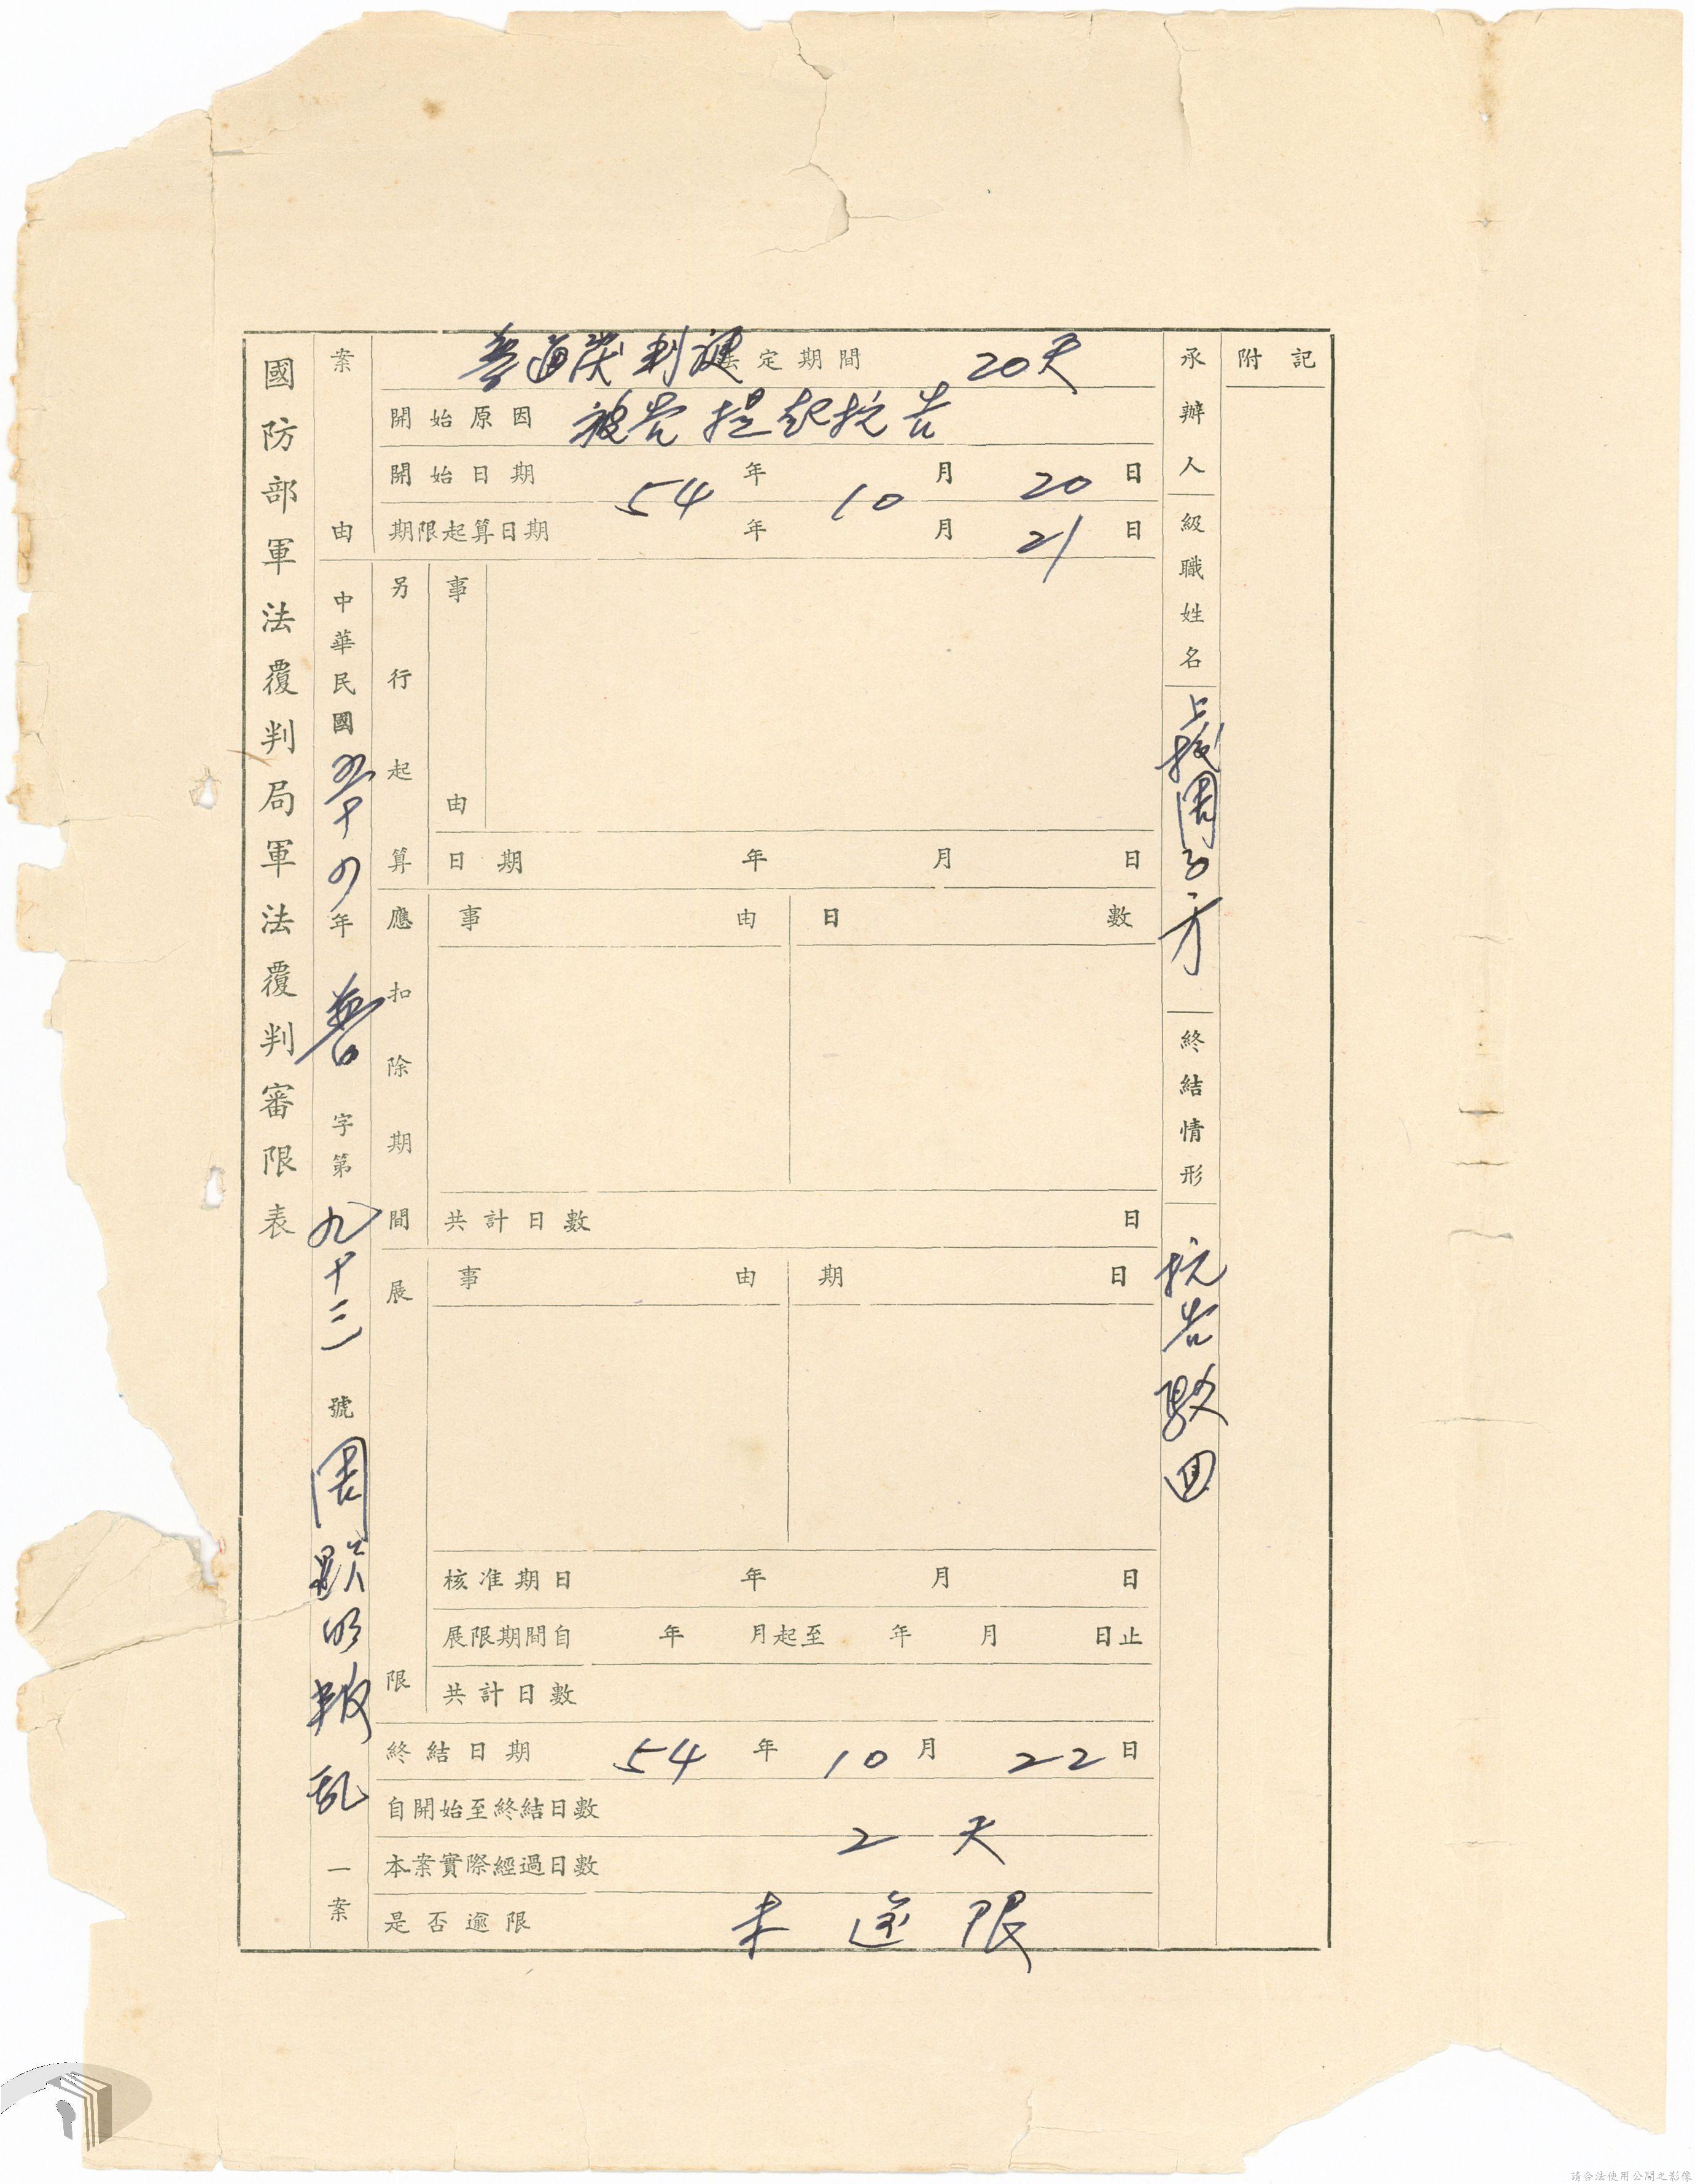 國防部軍法覆判局軍法覆判審限表
案由
中華民國五十四年 普 字第 九十三 號 周 明叛乱 一案
普通 判 法定期間 20天
開始原因 被告提起抗告
開始日期 54年 10月 20日
期限起算日期 年 月 21日
另行起算
事由
日期 年 月 日
應扣除期間
事由 日數
共計日數 日
展限
事由 期日
核准期日 年 月 日
展限期間自 年 月起至 年 月 日止
共計日數
終結日期 54年 10月 22日
自開始至終結日數
2天
本案實際經過日數
是否逾限 未逾限
承辦人級職姓名 上校周 方
終結情形 抗告駁回
附記
請合法使用公開之影像